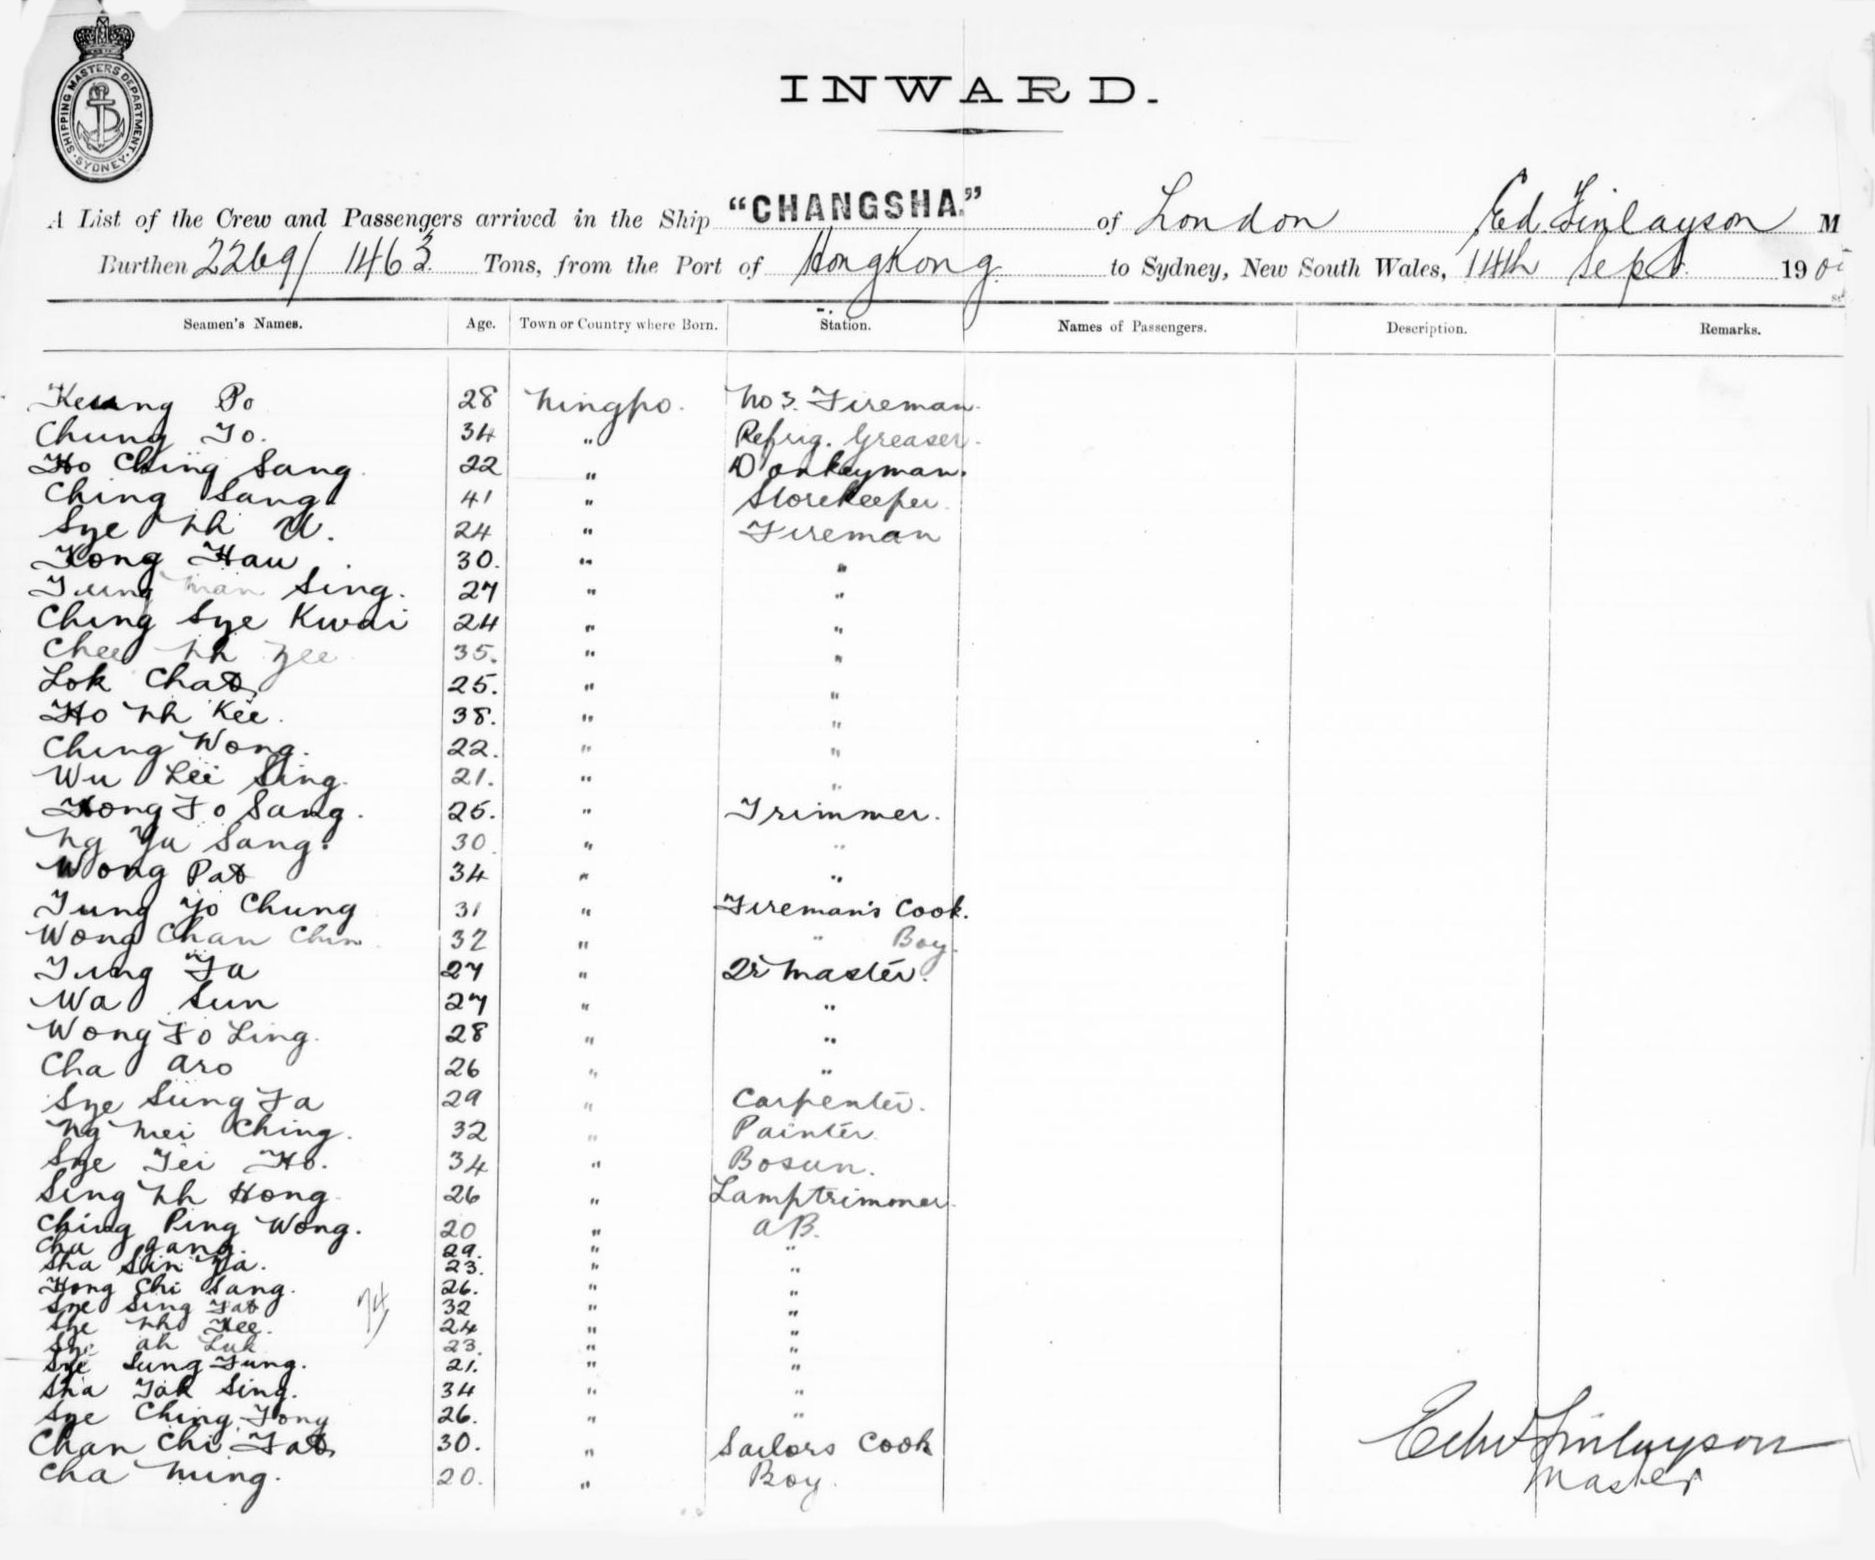 SHIPPING MASTERS DEPARTMENT · SYDNEY ·
INWARD.
A List of the Crew and Passengers arrived in the Ship "CHANGSHA." of London Ed. Finlayson M
Burthen 2269/1463 Tons, from the Port of HongKong to Sydney, New South Wales, 14th Sept. 190
Seamen's Names. Age. Town or Country where Born. Station. Names of Passengers. Description. Remarks.
Keung Po 28 Ningpo. No 3. Fireman.
Chung Yo. 34 " Refrig. Greaser.
Ho Ching Sang. 22 " Donkeyman.
Ching Sang 41 " Storekeeper.
Sye Ah U. 24 " Fireman
Hau 30. " "
Tung Man Sing. 27 " "
Ching Sye Kwai 24 " "
Chee Ah Yee 35. " "
Lok Chat 25. " "
Ho Ah Kee. 38. " "
Ching Wong. 22. " "
Wu Lee Sing. 21. " "
Fo Sang. 25. " Trimmer.
Ng Ya Sang. 30 " "
Wong Pat 34 " "
Tung Yo Chung 31 " Fireman's Cook.
Wong Chan Chun 32 " " Boy.
Tung Fa 27 " Qr Master.
Wa Sun 27 " "
Wong Fo Ling. 28 " "
Cha Aro 26 " "
Sye Sung Fa 29 " Carpenter.
Ng Mei Ching. 32 " Painter.
Sye Tei Ho. 34 " Bosun.
Sing Ah Hong. 26 " Lamptrimmer.
Ching Ping Wong. 20 " AB.
Cha gang. 29. " "
Sha Sun Ya. 23. " "
Hong Chi Sang. 26. " "
Sye Sing Fat 32 " "
Sye Kee. 24 " "
Sye Ah Luk 23. " "
Sye Sung Fung. 21. " "
Sha Tak Sing. 34 " "
Sye Ching Fong 26. " "
Chan Chi Fat 30. " Sailors Cook
Cha Ning. 20. " Boy.
Edw Finlayson
Master